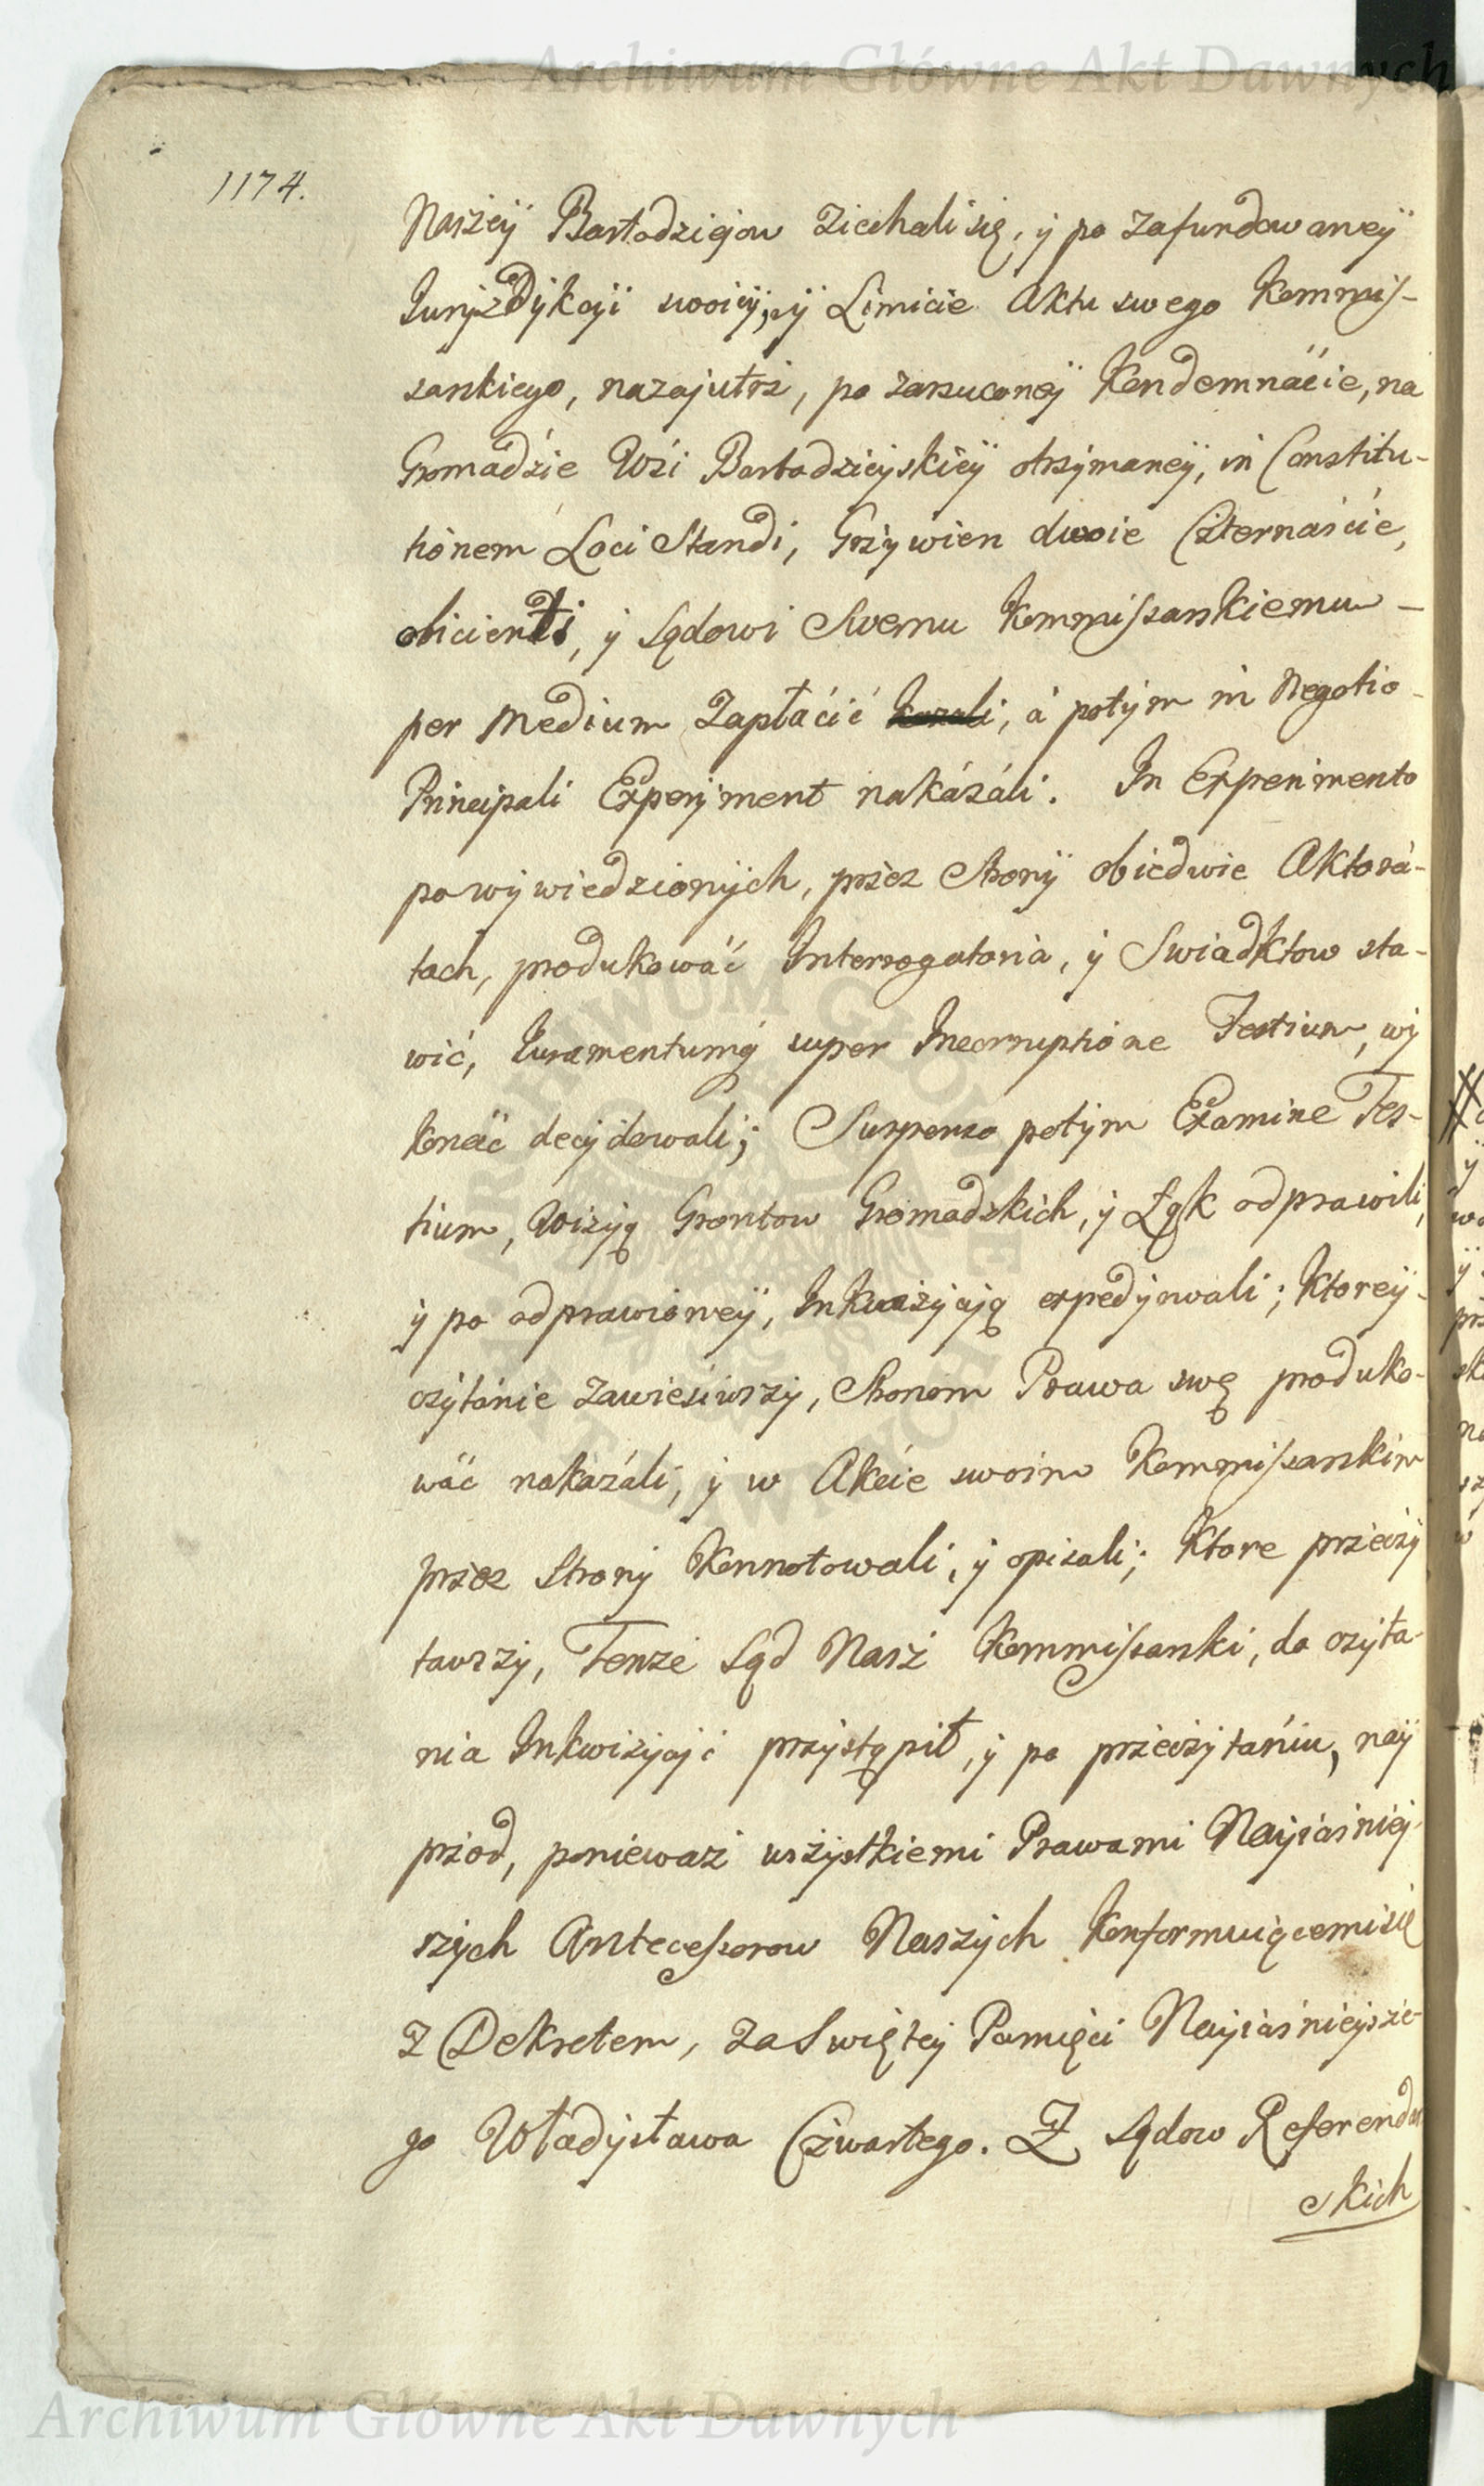 Archiwum Główne Akt Dawnych
1174.
Naszeÿ Bartodziejow ziechali się, ÿ po zafundowaneÿ
Juryzdykcÿi swoieÿ, ÿ Limicie Aktu swego Kommis-
sarskiego, nazajutrz, po zarzuconeÿ Kondemnácie, na
Gromadzie Wsi Bartodzieyskieÿ otrzÿmaneÿ, in Constitu-
tionem Loci Standi, Grzywien dwoie Czternaście,
obicienti, ÿ Sądowi Swemu Kommissarskiemu
per Medium Zapłácić, á potÿm in Negotio
Principali Experÿment nakázáli. In Experimento
po wÿwiedzionÿch, przez Stronÿ obiedwie Aktorá-
tach, produkowáć Interrogatoria, ÿ Swiadktow sta-
wić, Juramentumq́ super Incorruptione Testium, wÿ
konáć decÿdowali; Suspenso potÿm Examine Tes-
tium, Wizÿą Grontow Gromadzkich, ÿ Łąk odprawili,
ÿ po odprawioneÿ, Inkwizÿcÿą expedÿowali; Ktoreÿ
czÿtánie zawiesiwszÿ, Stronom Prawa swę produko-
wáć nakazáli, ÿ w Akcie swoim Kommissarskim
przez Stronÿ Konnotowali, ÿ opisali; Ktore przeczÿ
tawszÿ, Tenże Sąd Nasz Kommissarski, do czÿta-
nia Inkwizÿcÿi przÿstąpił, ÿ po przeczÿtániu, naÿ
przod, ponieważ wszÿstkiemi Prawami Naÿiásnieÿ-
szÿch Antecessorow Naszÿch Konformuiącemi się
z Dekretem, za Swiętey Pamięci Naÿiásnieÿsze-
go Władÿsława Czwartego. Z Sądow Referendar
skich
Archiwum Główne Akt Dawnych